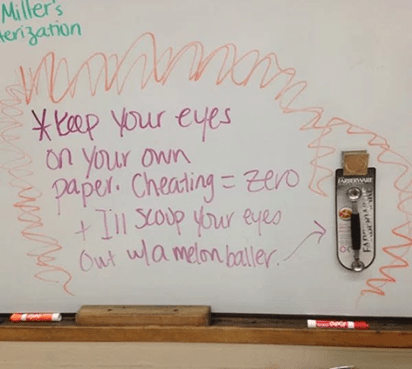 Miller's
terization
*Keep your eyes
on your own
paper. Cheating = zero
+ I'll scoop your eyes
out w/a melon baller.
FARBERWARE
EXPO
EXPO